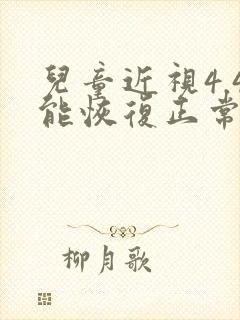 兒童近視4.
能恢復正常
柳月歌